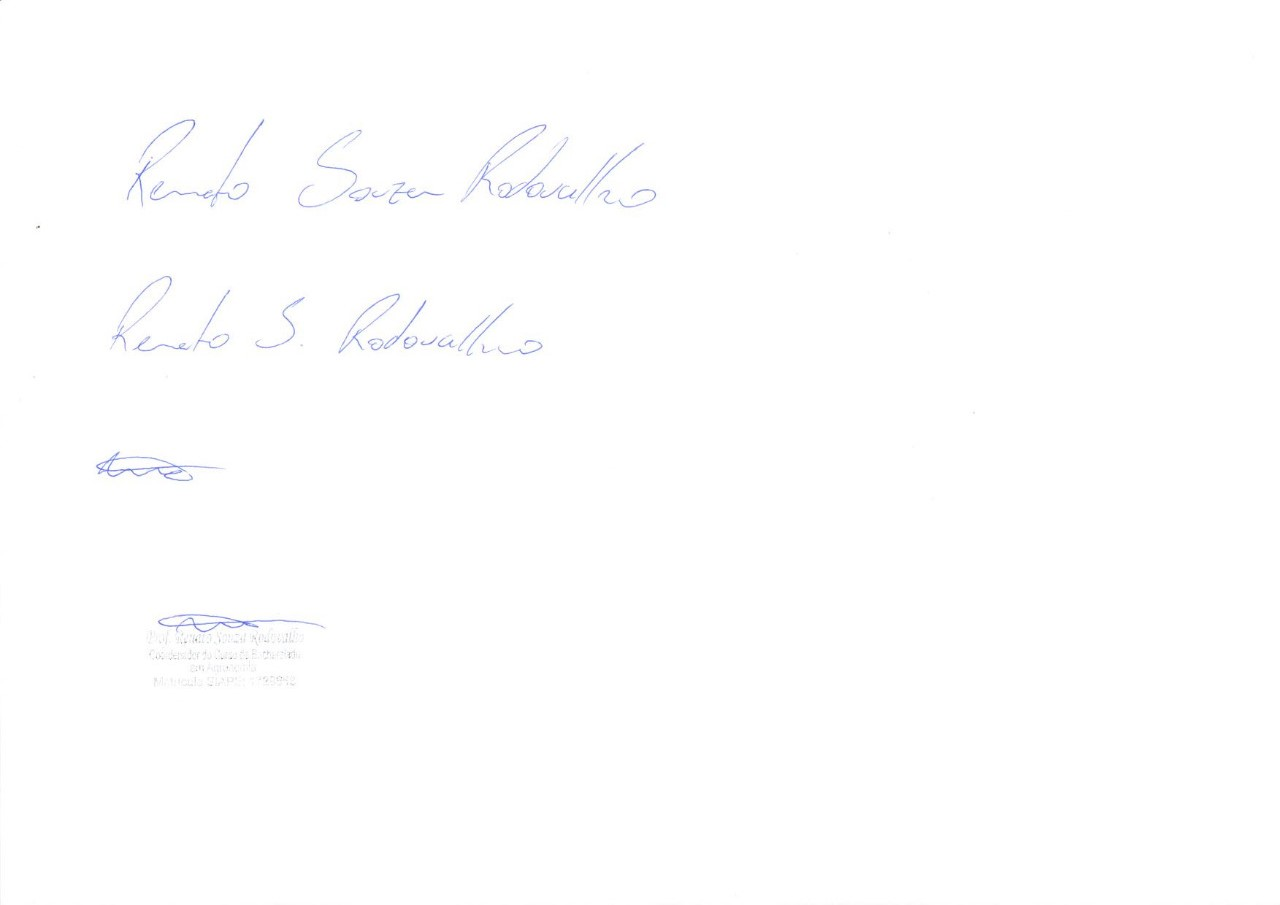 Renato Souza Rodovalho
Renato S. Rodovalho
Prof. Renato Souza Rodovalho
Coordenador do Curso de Bacharelado
em Agronomia
Matrícula SIAPE: